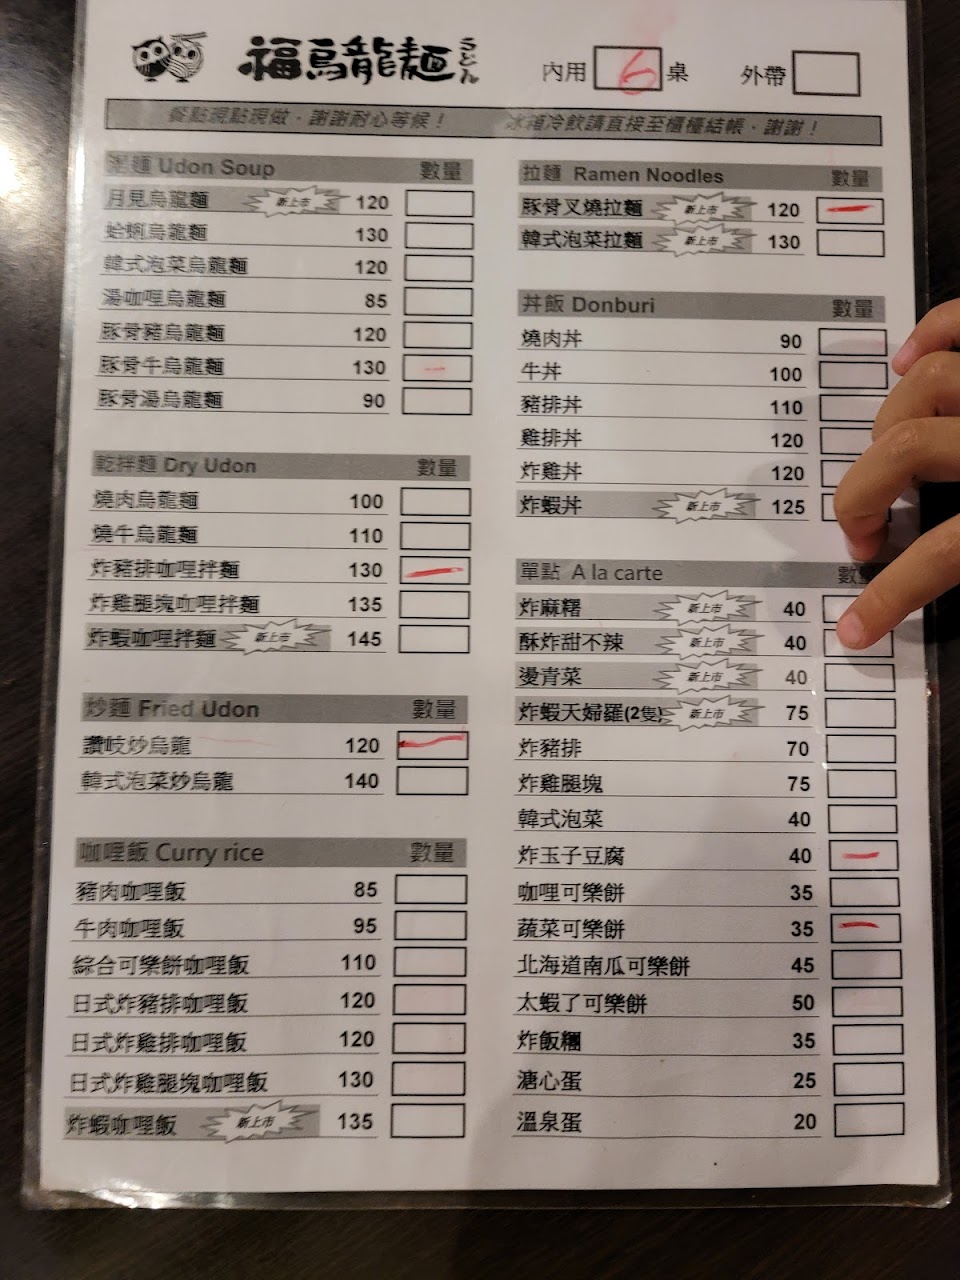 福烏龍麵 うどん
內用 6 桌 外帶
餐點現點現做，謝謝耐心等候！ 冰箱冷飲請直接至櫃檯結帳，謝謝！
湯麵 Udon Soup 數量
月見烏龍麵 新上市 120
蛤蜊烏龍麵 130
韓式泡菜烏龍麵 120
湯咖哩烏龍麵 85
豚骨豬烏龍麵 120
豚骨牛烏龍麵 130 一
豚骨湯烏龍麵 90
乾拌麵 Dry Udon 數量
燒肉烏龍麵 100
燒牛烏龍麵 110
炸豬排咖哩拌麵 130 一
炸雞腿塊咖哩拌麵 135
炸蝦咖哩拌麵 新上市 145
炒麵 Fried Udon 數量
讚岐炒烏龍 120 一
韓式泡菜炒烏龍 140
咖哩飯 Curry rice 數量
豬肉咖哩飯 85
牛肉咖哩飯 95
綜合可樂餅咖哩飯 110
日式炸豬排咖哩飯 120
日式炸雞排咖哩飯 120
日式炸雞腿塊咖哩飯 130
炸蝦咖哩飯 新上市 135
拉麵 Ramen Noodles 數量
豚骨叉燒拉麵 新上市 120 一
韓式泡菜拉麵 新上市 130
丼飯 Donburi 數量
燒肉丼 90
牛丼 100
豬排丼 110
雞排丼 120
炸雞丼 120
炸蝦丼 新上市 125
單點 A la carte 數量
炸麻糬 新上市 40
酥炸甜不辣 新上市 40
燙青菜 新上市 40
炸蝦天婦羅(2隻) 新上市 75
炸豬排 70
炸雞腿塊 75
韓式泡菜 40
炸玉子豆腐 40 一
咖哩可樂餅 35
蔬菜可樂餅 35 一
北海道南瓜可樂餅 45
太蝦了可樂餅 50
炸飯糰 35
溏心蛋 25
溫泉蛋 20